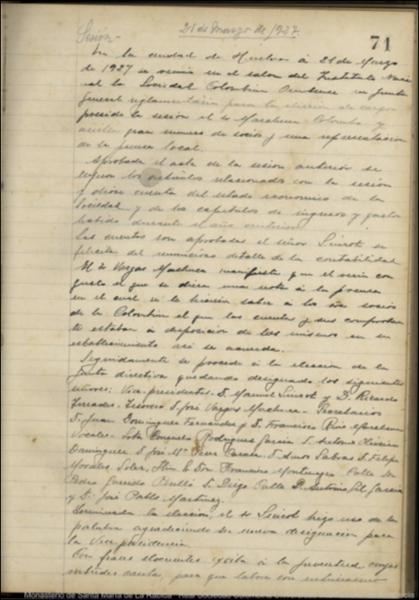 21 de Marzo de 1927
71
Sesión.-
En la ciudad de Huelva a 21 de Marzo
de 1927 se reunió en el salon del Instituto
la Sociedad Colombina Onubense en Junta
general reglamentaria para la elección de cargos
la sesión el Sr Marchena Colombo y
gran numero de socios y una representacion
de la prensa local.
Aprobada el acta de la sesion anterior se
relacionados con la sesion
y diose cuenta del estado economico de la
Sociedad y de los capitulos de ingresos y gastos
habido durante el año
Las cuentas son aprobadas el señor Siurot se
felicita del numeroso detalle de la contabilidad
El Sr Vargas Machuca manifiesta que el veria con
gusto el que se diera una nota á la prensa
en el cual se le hiciera saber á los socios
de la Colombina el que las cuentas y sus comprobantes
estaban á disposicion de los mismos en su
establecimiento asi se acuerda.
Seguidamente se procede á la eleccion de la
Junta directiva quedando designado los siguientes
señores: Vice-presidentes. D. Manuel Siurot y D. Ricardo
Terrades. Tesorero D. José Vargas Machuca. Secretarios
D. Juan Dominguez Fernandez y D. Francisco Ruiz Marchena
Vocales. Rodriguez Garcia D. Antonio Oliveira
Dominguez D. José Mª Perez Carasa D. Felipe
Morales, Soler, D. Francisco Montenegro
Pedro Garrido Perelló D. Diego Calle D. Antonio Gil Garcia
y D. José Pablo Martinez.
Terminada la eleccion, el Sr Siurot hizo uso de la
palabra agradeciendo su nueva designacion para
la Vice-presidencia
Con frases elocuentes exita á la juventud
para que labore con entusiasmo